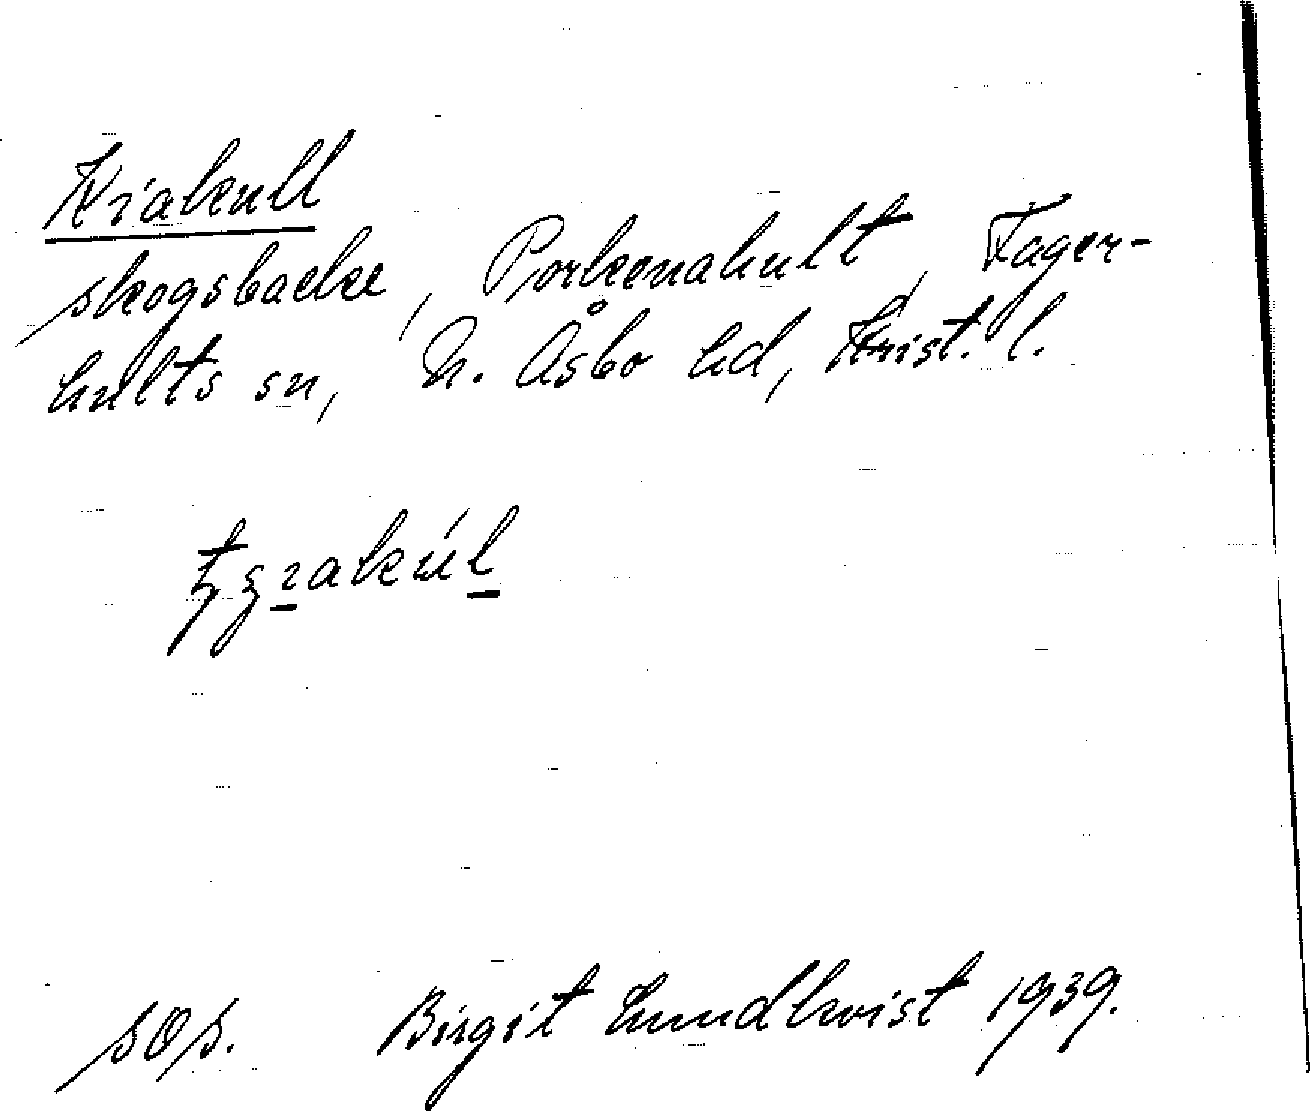 Kiakull
skogsbacke, Porkenahult, Fager-
hults sn, N. Åsbo hd, Krist. l.
sOs. Birgit Lundkvist 1939.